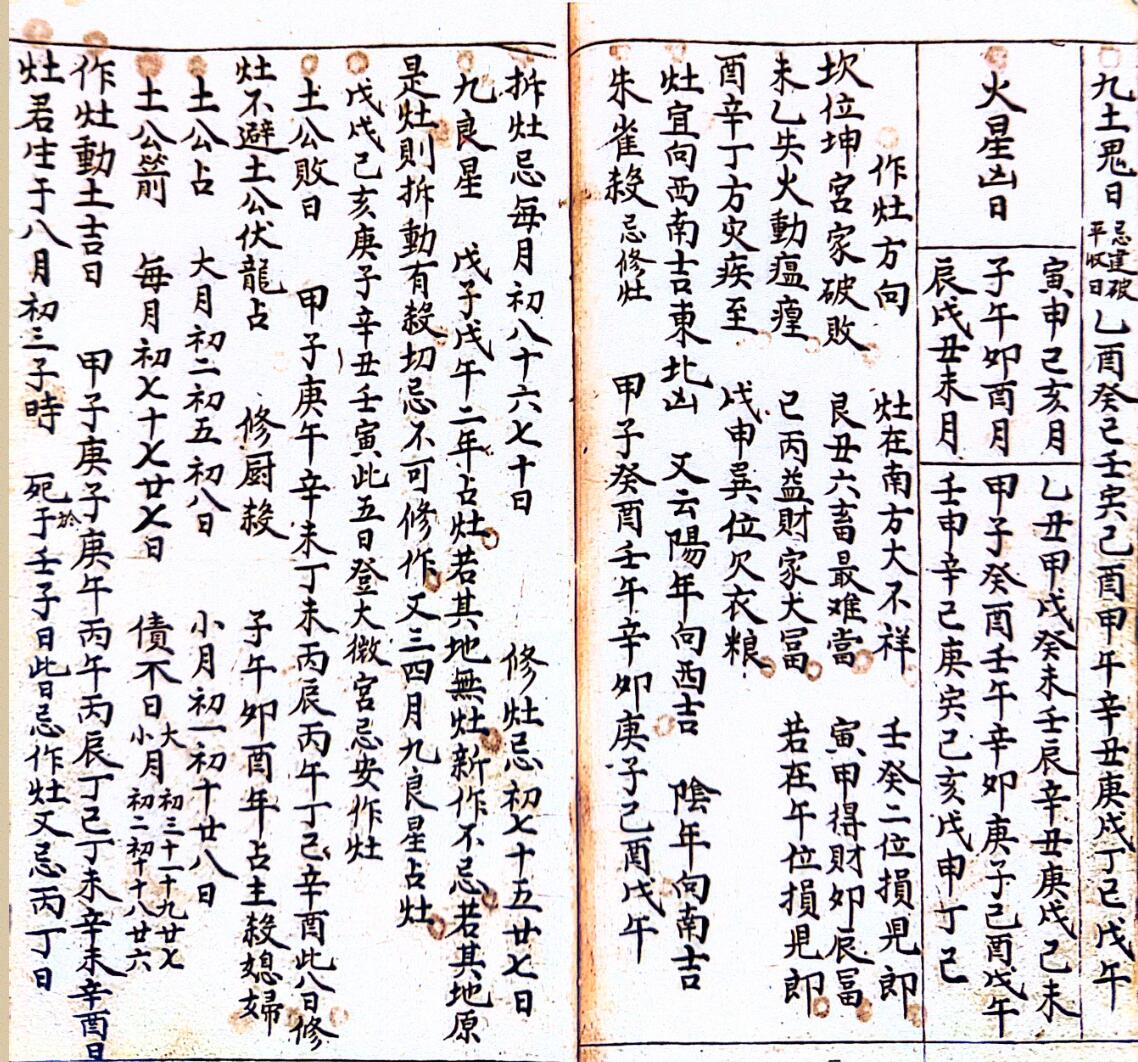 九土鬼日 忌建破平收日 乙酉癸巳壬寅己酉甲午辛丑庚戌丁巳戊午
火星凶日
寅申巳亥月 乙丑甲戌癸未壬辰辛丑庚戌己未
子午卯酉月 甲子癸酉壬午辛卯庚子己酉戊午
辰戌丑未月 壬申辛巳庚寅己亥戊申丁巳
作灶方向 灶在南方大不祥 壬癸二位損児郎
坎位坤宮家破敗 艮丑六畜最难當 寅甲得財卯辰冨
未乙失火動瘟瘟 巳丙益財家大冨 若在午位損児郎
酉辛丁方灾疾至 戌申巽位欠衣粮
灶宜向西南吉東北凶 又云陽年向西吉 陰年向南吉
朱雀殺 忌修灶 甲子癸酉壬午辛卯庚子己酉戊午
拆灶忌每月初八十六七十日 修灶忌初七十五廿七日
九良星 戊子戊午二年占灶若其地無灶新作不忌若其地原
是灶則拆動有殺切忌不可修作又三四月九良星占灶
戊戌己亥庚子辛丑壬寅此五日登大微宮忌安作灶
土公敗日 甲子庚午辛未丁未丙辰丙午丁巳辛酉此八日修
灶不避土公伏龍占 修厨殺 子午卯酉年占主殺媳婦
土公占 大月初二初五初八日 小月初一初十廿八日
土公箭 每月初七十七廿七日 債不日 大月初三十一十九廿七 小月初二初十十八廿六
作灶動土吉日 甲子庚子庚午丙午丙辰丁巳丁未辛未辛酉日
灶君生于八月初三子時 死于於壬子日此日忌作灶又忌丙丁日